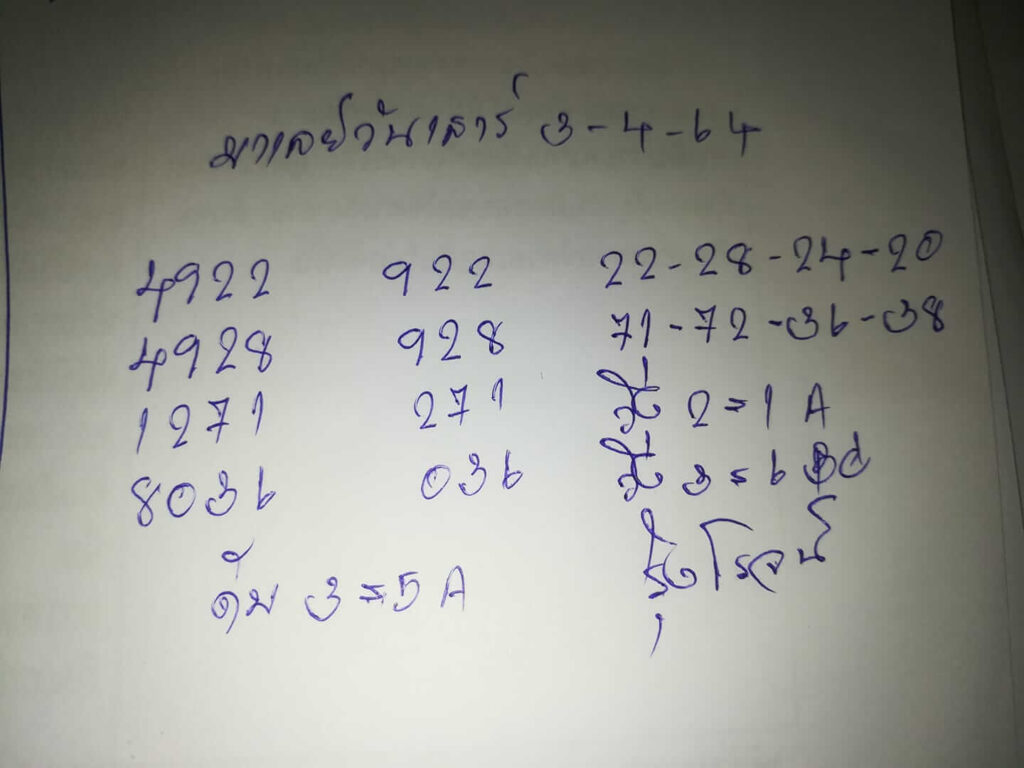 มาเลย์วันเสาร์ 3-4-64
4922 922 22-28-24-20
4928 928 71-72-36-38
1271 271 2=1 A
8036 036 3=6
ดับ 3=5 A
รุ่งโรจน์